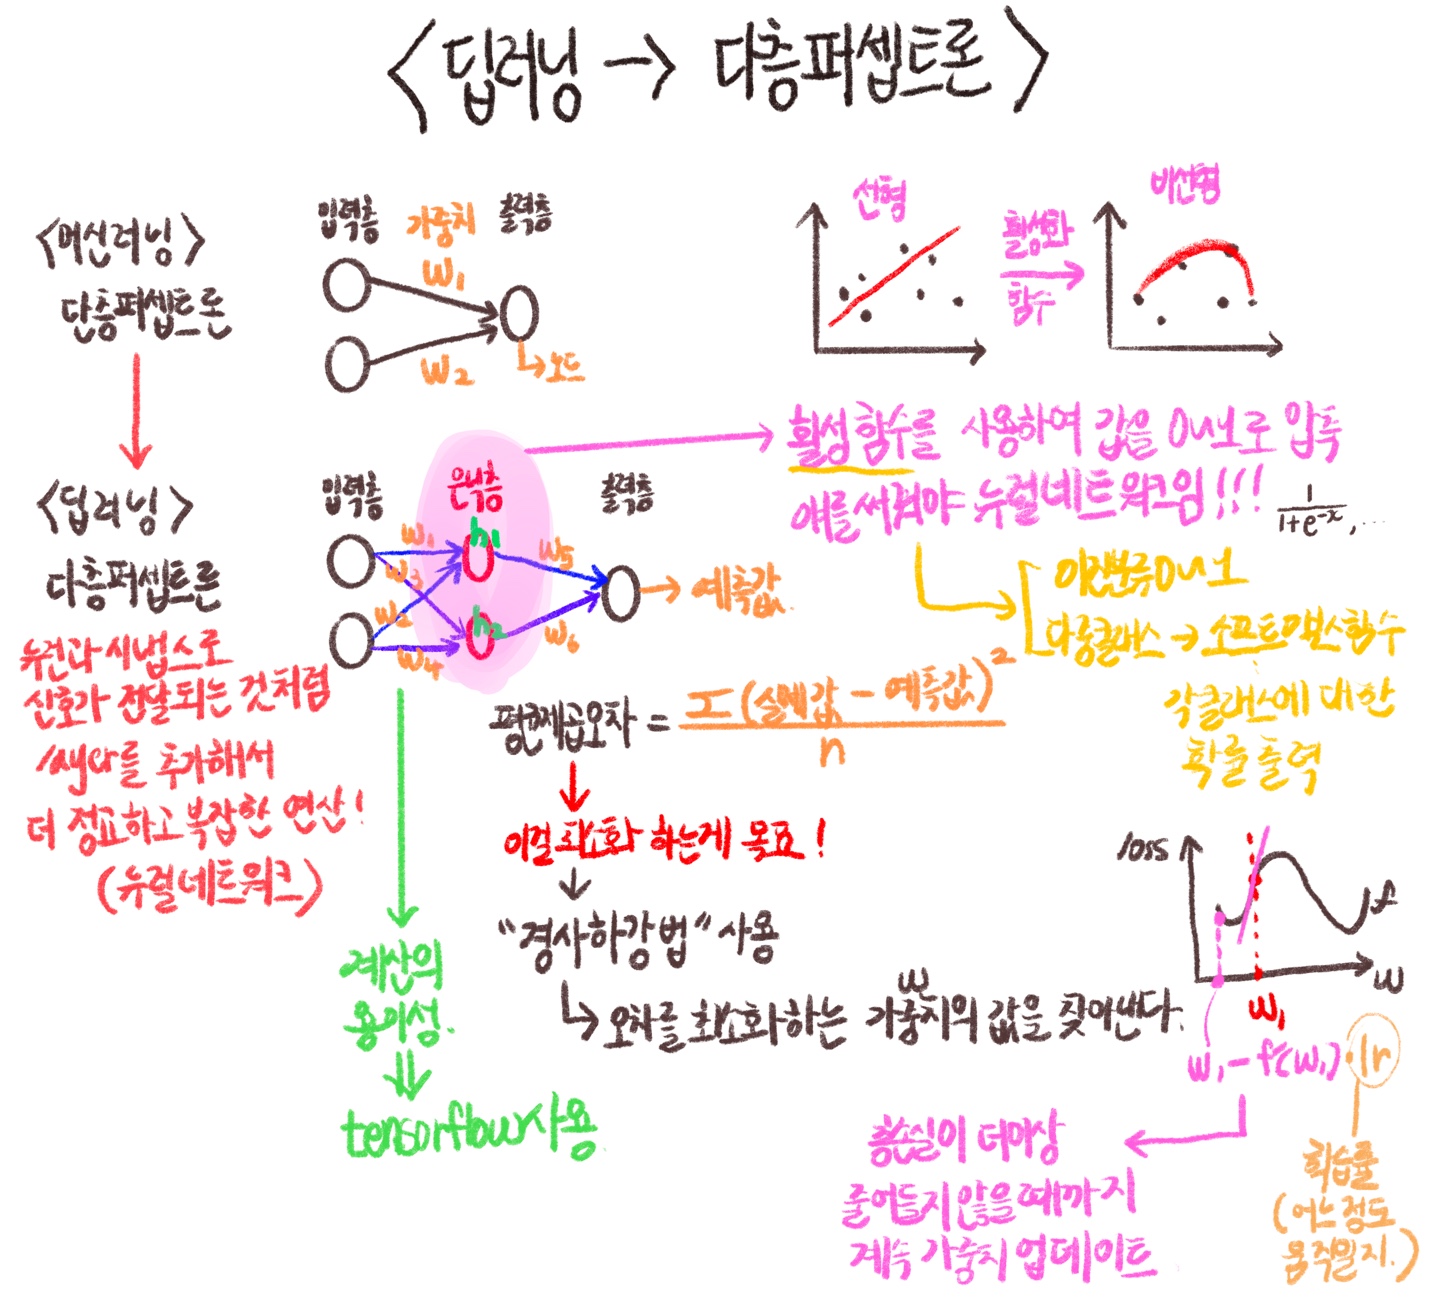 <딥러닝 → 다층퍼셉트론>
<머신러닝>
단층퍼셉트론
입력층
가중치
출력층
w1
w2
노드
선형
활성화
함수
비선형
<딥러닝>
다층퍼셉트론
뉴런과 시냅스로
신호가 전달되는 것처럼
layer를 추가해서
더 정교하고 복잡한 연산!
(뉴럴네트워크)
입력층
은닉층
출력층
w1
w3
w2
w4
h1
h2
w5
w6
예측값
활성함수를 사용하여 값을 0~1로 압축
얘를써줘야 뉴럴네트워크임!!!
1/1+e^-x, ...
이진분류 0~1
다중클래스 → 소프트맥스함수
각클래스에 대한
확률출력
평균제곱오차 = Σ(실제값 - 예측값)²/n
이걸 최소화 하는게 목표!
"경사하강법" 사용
w
오차를 최소화하는 가중치의 값을 찾아낸다.
계산의
용이성.
tensorflow사용
loss
f
w
w1
w1 - f'(w1)·lr
손실이 더이상
줄어들지않을때까지
계속 가중치 업데이트
학습률
(어느정도
움직일지.)